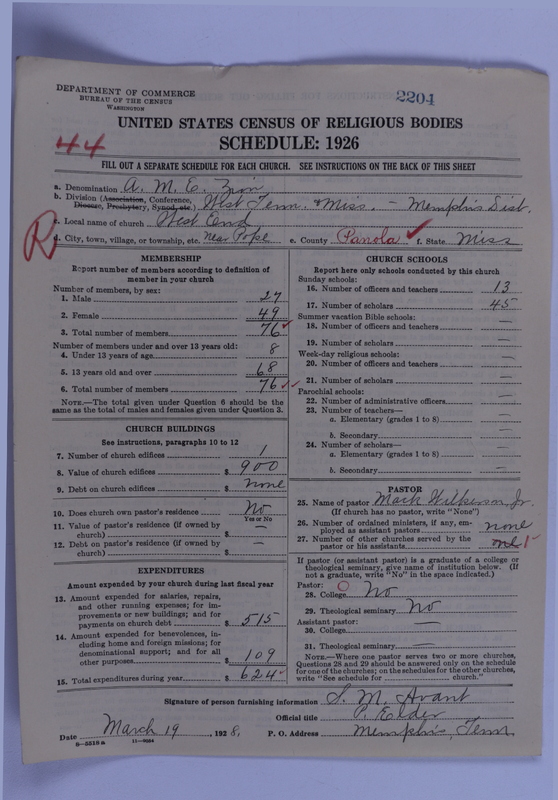 DEPARTMENT OF COMMERCE
BUREAU OF THE CENSUS
WASHINGTON
2204
UNITED STATES CENSUS OF RELIGIOUS BODIES
SCHEDULE: 1926
44
FILL OUT A SEPARATE SCHEDULE FOR EACH CHURCH. SEE INSTRUCTIONS ON THE BACK OF THIS SHEET
a. Denomination A. M. E. Zion
b. Division (Association, Conference, Diocese, Presbytery, Synod, etc.) West Tenn. & Miss. - Memphis Dist.
c. Local name of church West End
R
d. City, town, village, or township, etc. Near Pope e. County Panola ✓ f. State Miss
MEMBERSHIP
Report number of members according to definition of
member in your church
Number of members, by sex:
1. Male 27
2. Female 49
3. Total number of members 76 ✓
Number of members under and over 13 years old:
4. Under 13 years of age 8
5. 13 years old and over 68
6. Total number of members 76 ✓ ✓
NOTE.—The total given under Question 6 should be
same as the total of males and females given under Question 3.
CHURCH BUILDINGS
See instructions, paragraphs 10 to 12
7. Number of church edifices 1
8. Value of church edifices $ 900
9. Debt on church edifices $ none
10. Does church own pastor's residence No
Yes or No
11. Value of pastor's residence (if owned by
church) $ —
12. Debt on pastor's residence (if owned by
church) $ —
EXPENDITURES
Amount expended by your church during last fiscal year
13. Amount expended for salaries, repairs,
and other running expenses; for im-
provements or new buildings; and for
payments on church debt $ 515
14. Amount expended for benevolences, in-
cluding home and foreign missions; for
denominational support; and for all
other purposes $ 109
15. Total expenditures during year $ 624 ✓
CHURCH SCHOOLS
Report here only schools conducted by this church
Sunday schools:
16. Number of officers and teachers 13
17. Number of scholars 45
Summer vacation Bible schools:
18. Number of officers and teachers —
19. Number of scholars —
Week-day religious schools:
20. Number of officers and teachers —
21. Number of scholars —
Parochial schools:
22. Number of administrative officers —
23. Number of teachers—
a. Elementary (grades 1 to 8) —
b. Secondary —
24. Number of scholars—
a. Elementary (grades 1 to 8) —
b. Secondary —
PASTOR
25. Name of pastor Mack Wilkerson, Jr.
(If church has no pastor, write "None")
26. Number of ordained ministers, if any, em-
ployed as assistant pastors none
27. Number of other churches served by the
pastor or his assistants one 1
If pastor (or assistant pastor) is a graduate of a college or
theological seminary, give name of institution below. (If
not a graduate, write "No" in the space indicated.)
Pastor: 0
28. College No
29. Theological seminary No
Assistant pastor:
30. College —
31. Theological seminary —
NOTE.—Where one pastor serves two or more churches,
Questions 28 and 29 should be answered only on the schedule
for one of the churches; on the schedules for the other churches,
write "See schedule for church."
Signature of person furnishing information S. M. Avant
Official title P. Elder
Date March 19, 1928. P. O. Address Memphis, Tenn
8—5518 a 11—9054